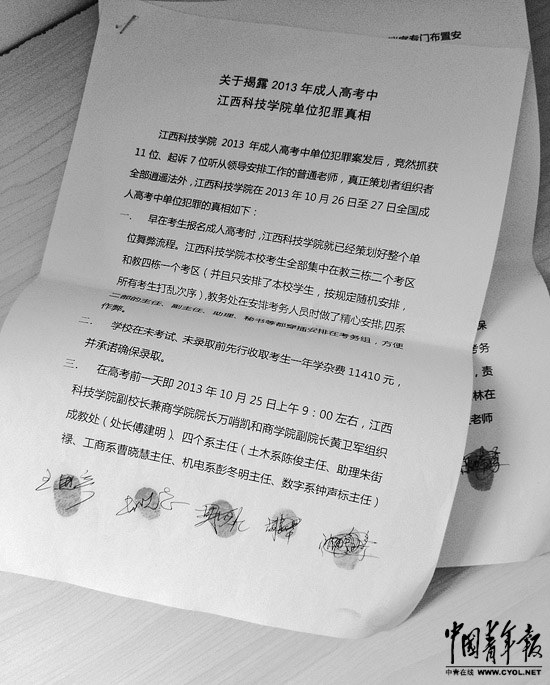 察专门布置安
关于揭露 2013 年成人高考中
江西科技学院单位犯罪真相
江西科技学院 2013 年成人高考中单位犯罪案发后，竟然抓获
11 位、起诉 7 位听从领导安排工作的普通老师，真正策划者组织者
全部逍遥法外，江西科技学院在 2013 年 10 月 26 日至 27 日全国成
人高考中单位犯罪的真相如下：
一、 早在考生报名成人高考时，江西科技学院就已经策划好整个单
位舞弊流程。江西科技学院本校考生全部集中在教三栋二个考区
和教四栋一个考区（并且只安排了本校学生，按规定随机安排，
所有考生打乱次序），教务处在安排考务人员时做了精心安排，四系
二部的主任、副主任、助理、秘书等都穿插安排在考务组，方便
作弊。
二、 学校在未考试、未录取前先行收取考生一年学杂费 11410 元，
并承诺确保录取。
三、 在高考前一天即 2013 年 10 月 25 日上午 9：00 左右，江西
科技学院副校长兼商学院院长万哨凯和商学院副院长黄卫军组织
成教处（处长傅建明）、四个系主任（土木系陈俊主任、助理朱街
禄、工商系曹晓慧主任、机电系彭冬明主任、数字系钟声标主任）
保
考务
，责
林在
老师
中国青年报
中青在线 WWW.CYOL.NET